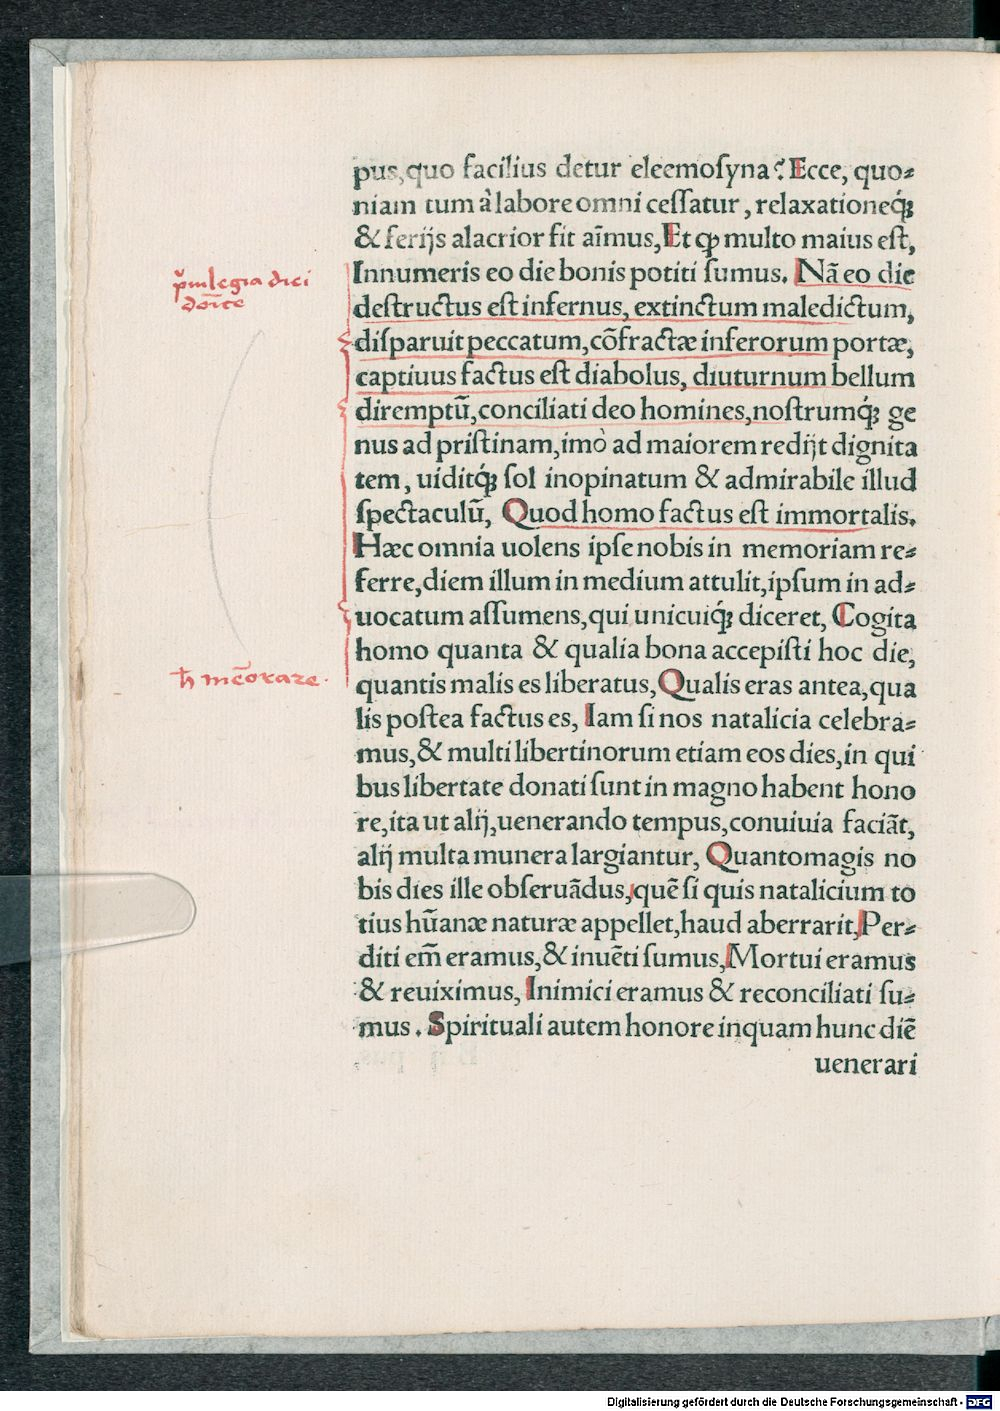 pus,quo facilius detur eleemoſyna? Ecce, quo⸗
niam tum à labore omni ceſſatur, relaxationeq́ꝫ
& ferijs alacrior fit aīmus, Et ꝙ multo maius eſt,
Innumeris eo die bonis potiti ſumus. Nā eo die
deſtructus eſt infernus, extinctum maledictum,
diſparuit peccatum, cōfractæ inferorum portæ,
captiuus factus eſt diabolus, diuturnum bellum
diremptū, conciliati deo homines, noſtrumq́ꝫ ge
nus ad priſtinam, imò ad maiorem redijt dignita
tem, uiditq́ꝫ ſol inopinatum & admirabile illud
ſpectaculū, Quod homo factus eſt immortalis.
Hæc omnia uolens ipſe nobis in memoriam re⸗
ferre, diem illum in medium attulit, ipſum in ad⸗
uocatum aſſumens, qui unicuiq́ꝫ diceret, Cogita
homo quanta & qualia bona accepiſti hoc die,
quantis malis es liberatus, Qualis eras antea, qua
lis poſtea factus es, Iam ſi nos natalicia celebra⸗
mus, & multi libertinorum etiam eos dies, in qui
bus libertate donati ſunt in magno habent hono
re, ita ut alij, uenerando tempus, conuiuia faciāt,
alij multa munera largiantur, Quantomagis no
bis dies ille obſeruādus, quē ſi quis natalicium to
tius hūanæ naturæ appellet, haud aberrarit, Per⸗
diti em̄ eramus, & inuēti ſumus, Mortui eramus
& reuiximus, Inimici eramus & reconciliati ſu⸗
mus. Spirituali autem honore inquam hunc diē
uenerari
p̉uilegia diei
dōice
ħ mēorare.
Digitalisierung gefördert durch die Deutsche Forschungsgemeinschaft - DFG